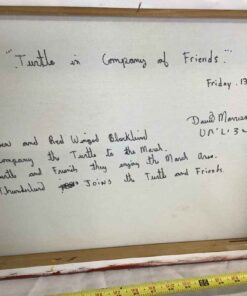 "Turtle in Company of Friends."
Friday. 13
David
and Red Winged Blackbird
Company the Turtle to the Marsh.
and Friends they enjoy the Marsh Area.
Thunderbird Joins the Turtle and Friends.